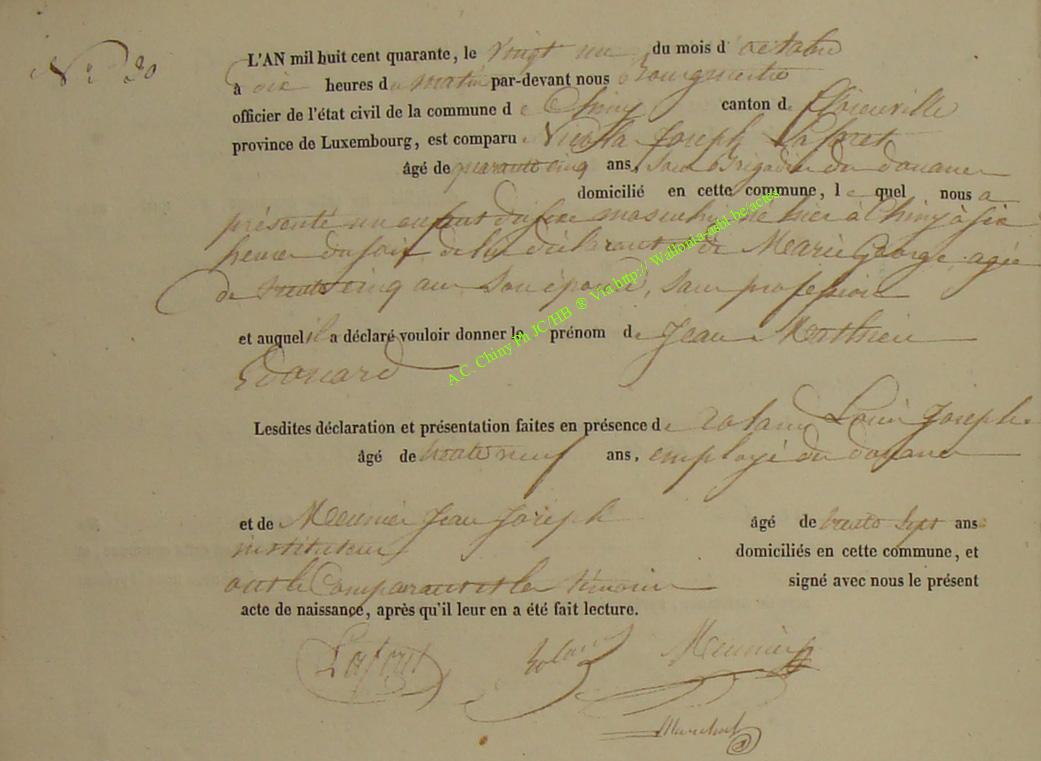 N° 20
L'AN mil huit cent quarante, le vingt un du mois d'octobre
à dix heures du matin par-devant nous Bourgmestre
officier de l'état civil de la commune de Chiny canton de Florenville
province de Luxembourg, est comparu Nicolas Joseph Laforet
âgé de quarante cinq ans, sous Brigadier des douanes
domicilié en cette commune, lequel nous a
présenté un enfant du sexe masculin né hier à Chiny à six
heures du soir de lui déclarant et de Marie George agée
de trente cinq ans son épouse, sans profession
et auquel il a déclaré vouloir donner le prénom de Jean Mathieu
Edouard
Lesdites déclaration et présentation faites en présence de Louis Joseph
âgé de trente neuf ans, employé des douanes
et de Meunier Jean Joseph âgé de trente sept ans
instituteur domiciliés en cette commune, et
ont le Comparant et les témoins signé avec nous le présent
acte de naissance, après qu'il leur en a été fait lecture.
Laforet Meunier
A.C. Chiny Ph JC/HB ® Via http:// Wallonia-asbl.be/actes